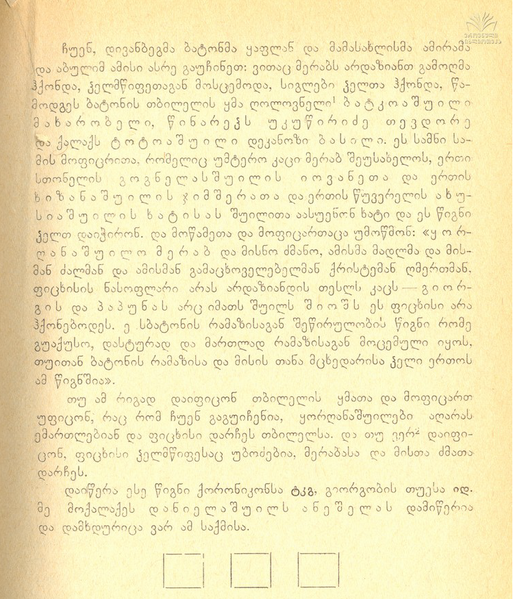 ჩუენ, დივანბეგმა ბატონმა ყაფლან და მამასახლისმა ამირამა
და აბულიმ ამისი ასრე გაუჩინეთ: ვითაც მერაბს არდაზიანთ გამოღმა
ჰქონდა, ჴელმწიფეთაგან მოსცემოდა, სიგლები ჴელთა ჰქონდა, წა-
მოდგეს ბატონის თბილელის ყმა ღოლოვნელი¹ ბატკოაშვილი
მახარობელი, წინარეჴს უკუწირიძე თევდორე
და ქალაქს ტოტოაშვილი დეკანოზი ბასილი. ეს სამნი სა-
მის მოფიცრითა. რომელიც უმტერო კაცი მერაბ შეუსახელოს, ერთი
სთონელის გოგნელასშვილის იოვანეთა და ერთის
ხიზანაშვილის ჯიმშერათა და ერთის წუვერელის ახუ-
სიაშვილის ხატისას შვილითა აასუენონ ხატი და ეს წიგნი
ჴელთ დაიჭირონ. და მოწამეთა და მოფიცართაცა უმოწმონ: «ყორ-
ღანაშვილო მერაბ და მისნო ძმანო, ამისმა მადლმა და მის-
მან ძალმან და ამისმან გამაცხოველებელმან ქრისტემან ღმერთმან,
ფიცხისის ნასოფლარი არას არდაზიანდის თესლს კაცს — გიორ-
გის და პაპუნას არც იმათს შვილს შიოშს ეს ფიცხისი არა
ჰქონებოდეს. ე სბატონის რამაზისაგან შეწირულობის წიგნი რომე
გუაქუსო, დასტურად და მართლად რამაზისაგან მოცემული იყოს,
თუითან ბატონის რამაზისა და მისის თანა მცხედარისა ჴელი ერთოს
ამ წიგნშია».
თუ ამ რიგად დაიფიცონ თბილელის ყმათა და მოფიცართ
უფიცონ, რაც რომ ჩუენ გაგუიჩენია, ყორღანაშვილები აღარას
ემართლებიან და ფიცხისი დარჩეს თბილელსა. და თუ ვერ² დაიფი-
ცონ, ფიცხისი ჴელმწიფესაც უბოძებია, მერაბასა და მისთა ძმათა
დარჩეს.
დაიწერა ესე წიგნი ქორონიკონსა ტკგ, გიორგობის თუესა იდ.
მე მოქალაქეს დანიელაშვილს ანეშელას დამიწერია
და დამხდურიცა ვარ ამ საქმისა.